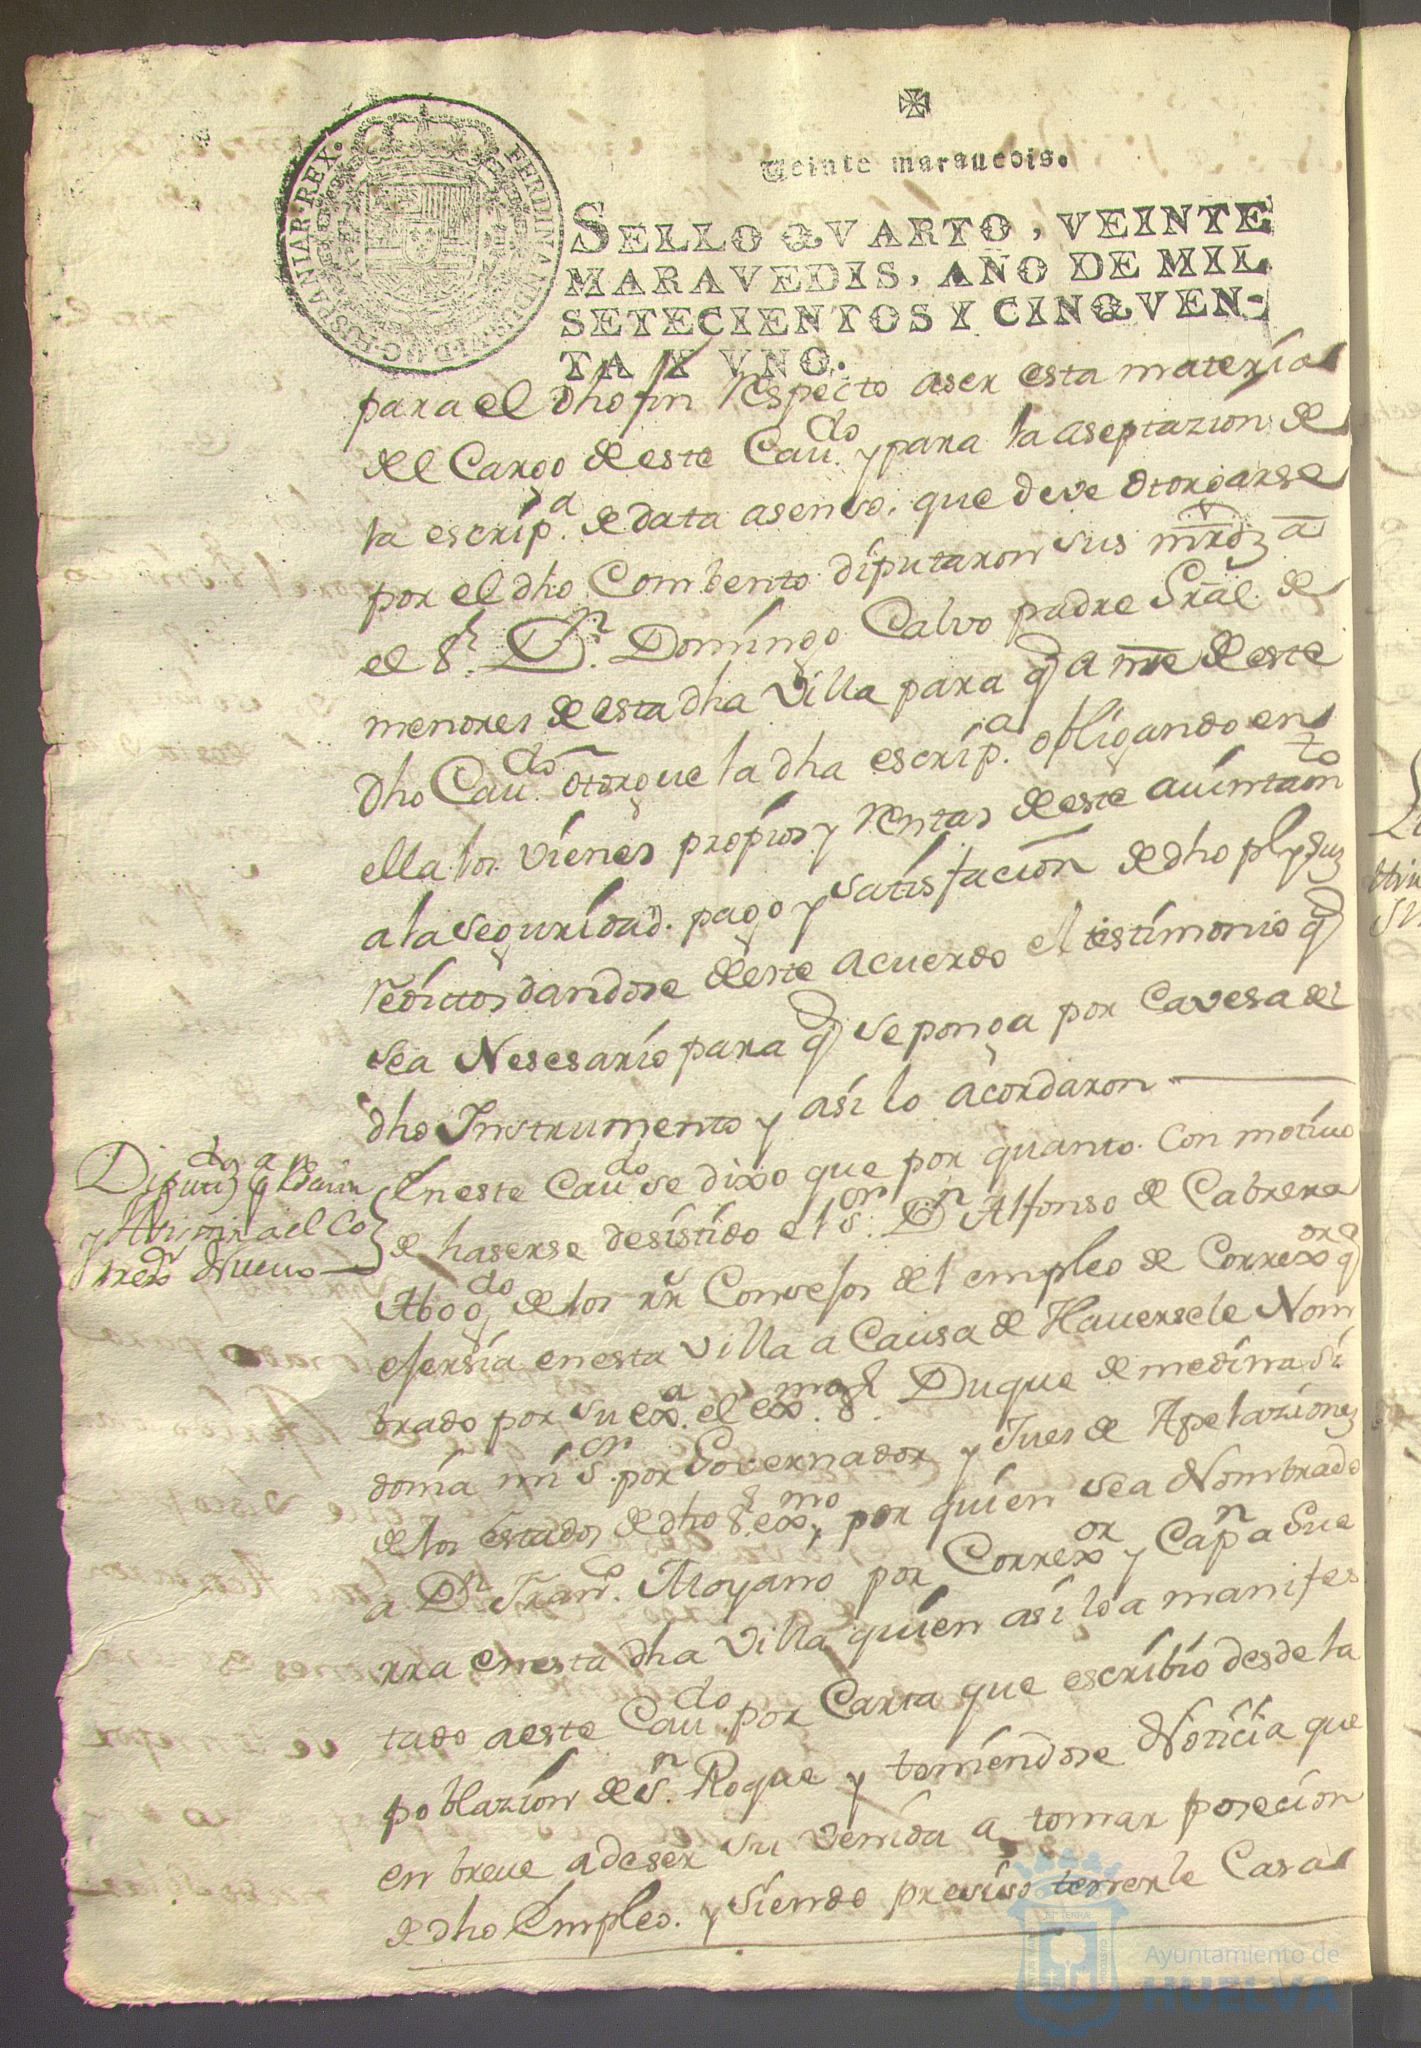 Veinte marauedis.
SELLO QVARTO, VEINTE
MARAVEDIS, AÑO DE MIL
SETECIENTOS Y CINQVEN-
TA Y VNO.
FERDINANDUS VI D G HISPANIAR REX
para el dho fin Respecto a ser esta materia
del Cargo de este Caudo y para la aseptazion de
la escripa de data a senso, que deve otorgarse
por el dho Combento diputaron sus mrdz a
el Sr. Dn. Domingo Calvo padre Gral de
menores de esta dha Villa para q a nre de este
dho Caudo otorgue la dha escripa obligando en
ella los vienes propios y rentas de este auintamto
a la seguridad, pago y satisfacion de dho pl y sus
reditos dandose de este acuerdo el testimonio q
sea Nesesario para q se ponga por Cavesa del
dho Instrumento y asi lo acordaron
Diputdz
y
rexor Nuevo
En este Caudo se dixo que por quanto con motiuo
de haserse desistido el Sor Dn Alfonso de Cabrera
Abogdo de los rr Consejos del empleo de Correxor q
ejersia en esta villa a Causa de Hauersele Nom
brado por su exa. el exmo Sr Duque de medina Si
donia mi Sor. por Governador y Jues de Apelaziones
de los estados de dho Sr exmo, por quien sea Nombrado
a Dn Franco. Moyano por Correxor y Capn a Gue
rra en esta dha Villa quien asi lo a manifes
tado a este Caudo por Carta que escribio desde la
poblazion de Sn. Roque y teniendose Noticia que
en breue a de ser su venida a tomar posecion
de dho Empleo. y siendo presiso tenerle Casa
Ayuntamiento de
HUELVA